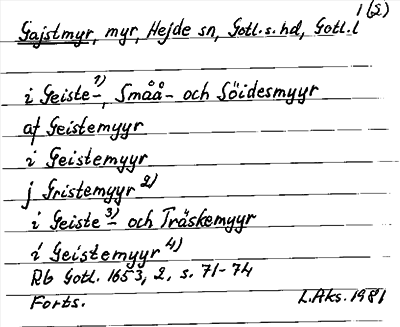 1(5)
Gajstmyr, myr, Hejde sn, Gotl.s.hd, Gotl.l
i Geiste-1), Småå- och Söidesmyyr
af Geistemyyr
i Geistemyyr
j Gristemyyr 2)
i Geiste-3) och Träskemyyr
i Geistemyyr 4)
Rb Gotl. 1653, 2, s. 71-74
Forts. L.Aks. 1981